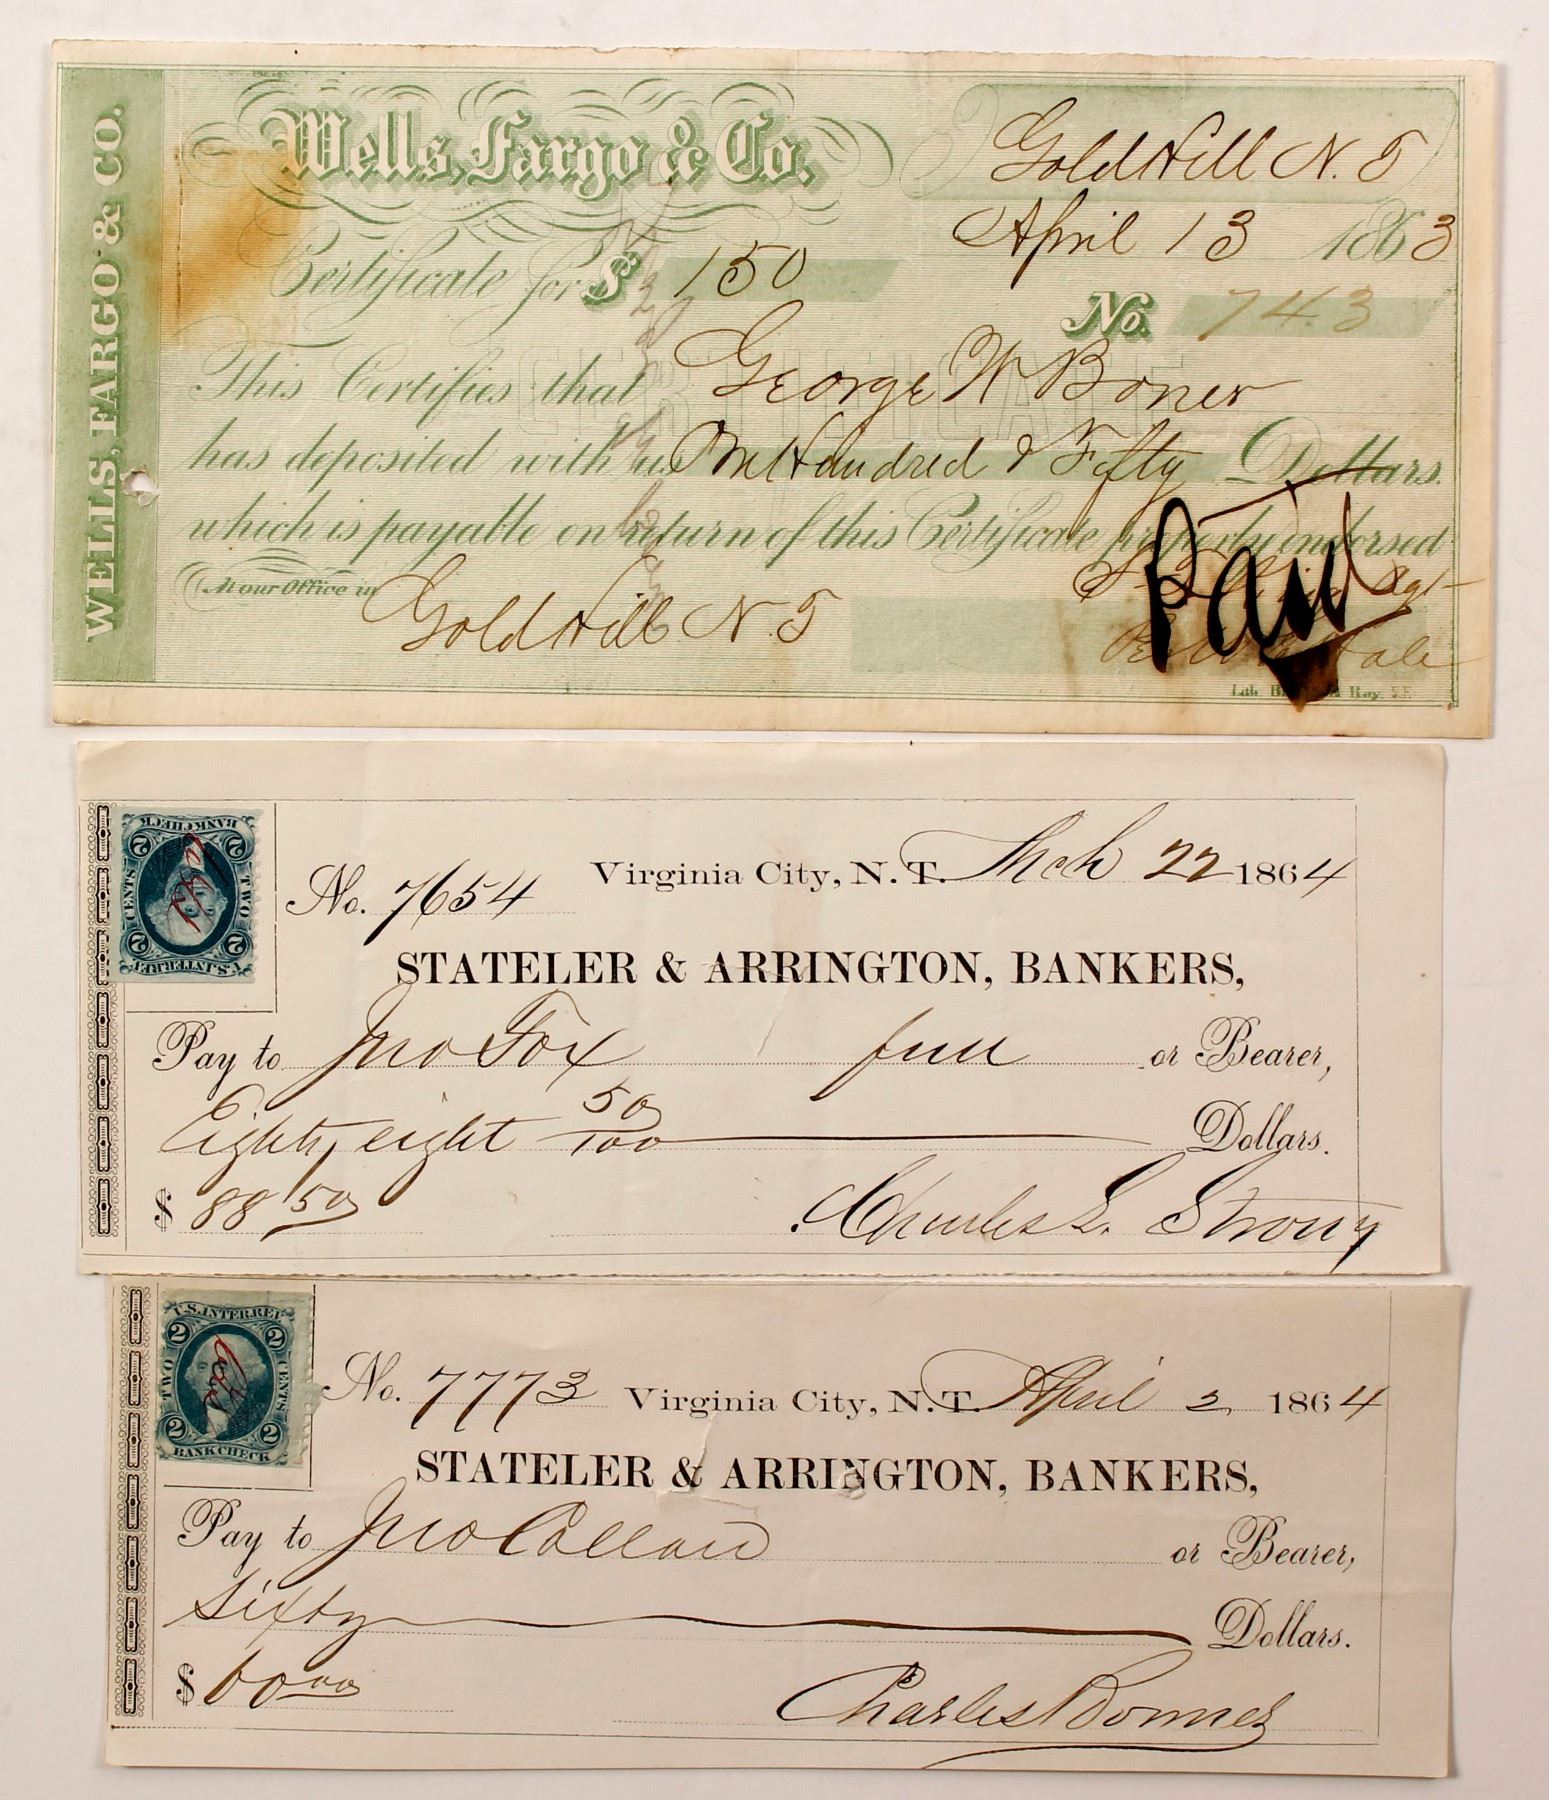 WELLS, FARGO & CO.
Wells, Fargo & Co.
Gold Hill N. T
April 13 1863
Certificate for $ 150
No. 743
This Certifies that George W Boner
has deposited with us One Hundred & Fifty Dollars.
which is payable on return of this Certificate properly endorsed
At our Office in Gold Hill N. T
Agt
Paid
Hale
Lith.
U.S. INTER. REV.
2 2
TWO CENTS
2 2
BANK CHECK
No. 7654 Virginia City, N.T. Mch 22 1864
STATELER & ARRINGTON, BANKERS,
Pay to Jno Fox or Bearer,
Eighty eight 50/100 Dollars.
$ 88 50 Charles L. Strong
U.S. INTER. REV.
2 2
TWO CENTS
2 2
BANK CHECK
No. 7773 Virginia City, N.T. April 2 1864
STATELER & ARRINGTON, BANKERS,
Pay to Jno or Bearer,
Sixty Dollars.
$ 60 00 Charles Bonner